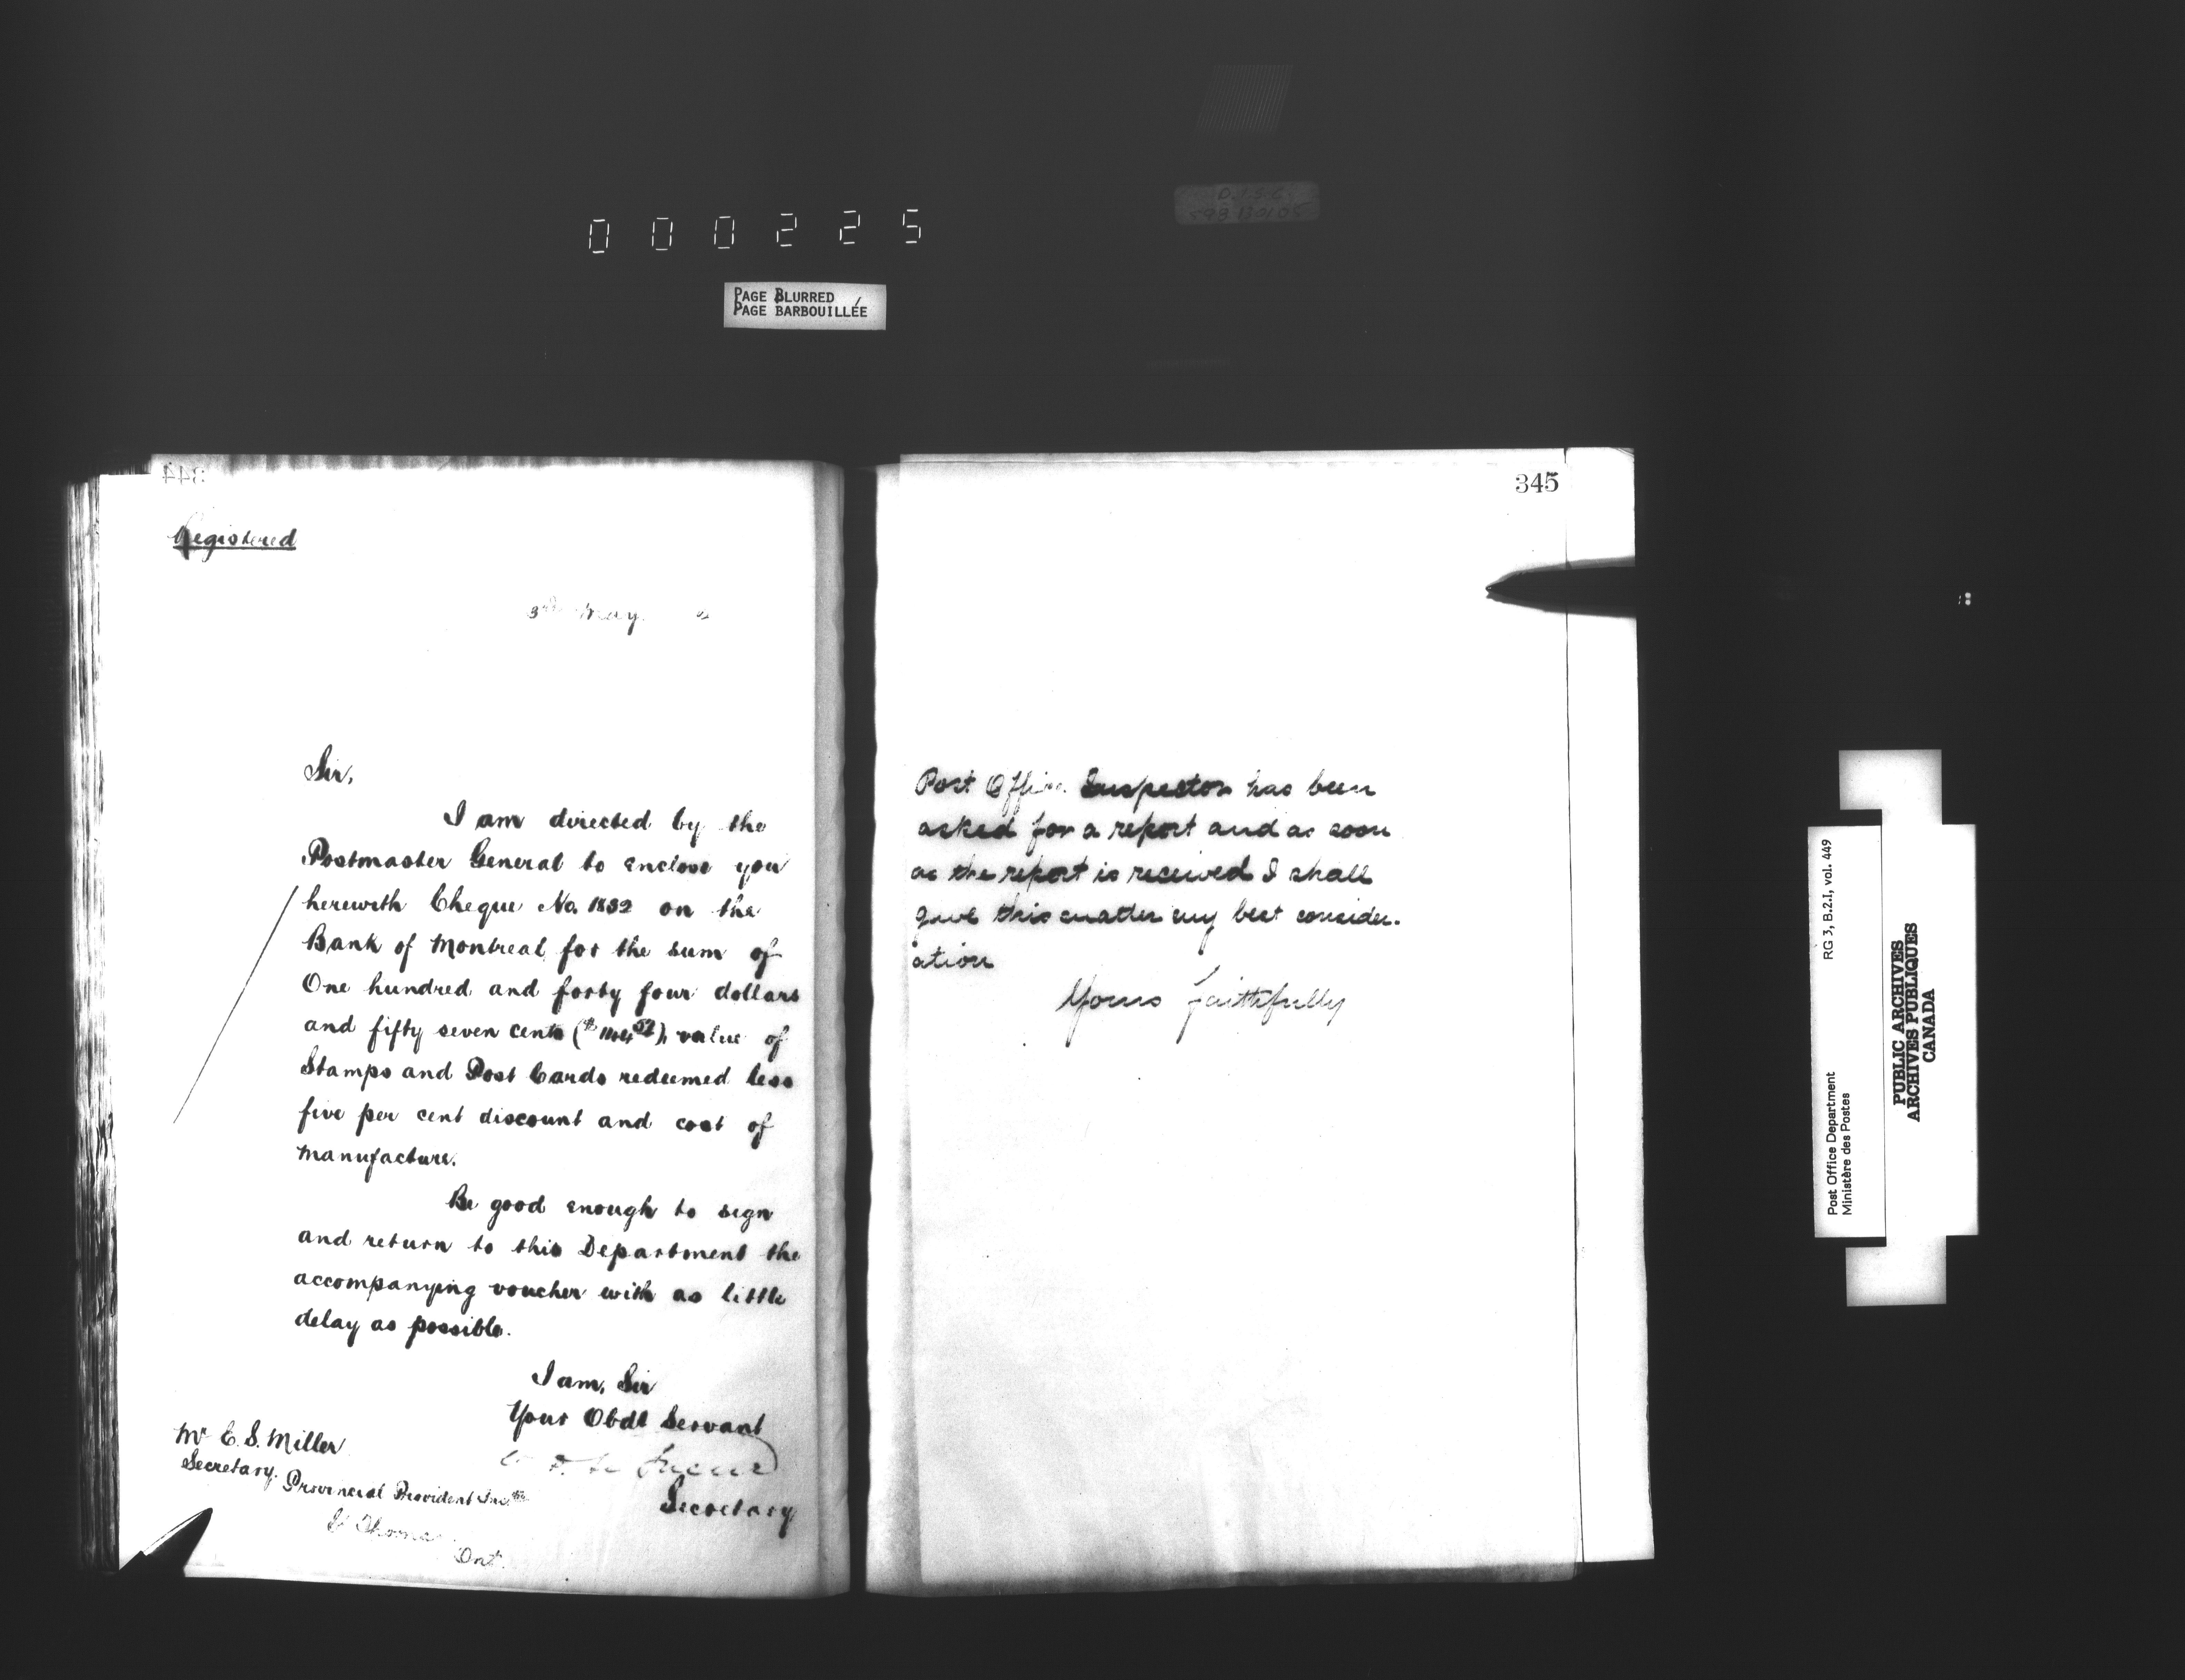 000225
PAGE BLURRED
PAGE BARBOUILLÉE
344
Registered
3rd May
Sir,
I am directed by the
Postmaster General to enclose you
herewith Cheque No. 1832 on the
Bank of Montreal for the sum of
One hundred and forty four dollars
and fifty seven cents ($144 57), value of
Stamps and Post Cards redeemed less
five per cent discount and cost of
manufacture.
Be good enough to sign
and return to this Department the
accompanying voucher with as little
delay as possible.
I am, Sir
Your Obdt Servant
Secretary
Mr E. S. Miller
Secretary.
Provincial Provident Inst.
St Thomas
Ont.
345
Post Office Inspector has been
asked for a report and as soon
as the report is received I shall
give this matter my best consider-
ation
Yours faithfully
RG 3, B.2.I, vol. 449
Post Office Department
Ministère des Postes
PUBLIC ARCHIVES
ARCHIVES PUBLIQUES
CANADA